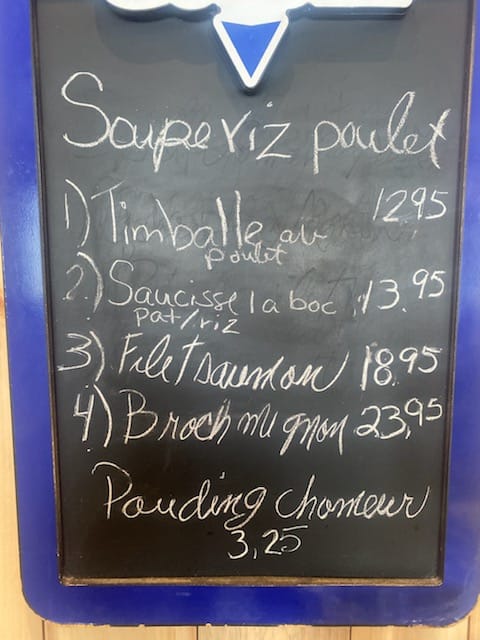 Soupe riz poulet
1) Timballe au 12 95
poulet
2) Saucisse la boc 13.95
pat/riz
3) Filet saumon 18.95
4) Broch mignon 23,95
Pouding chomeur
3,25